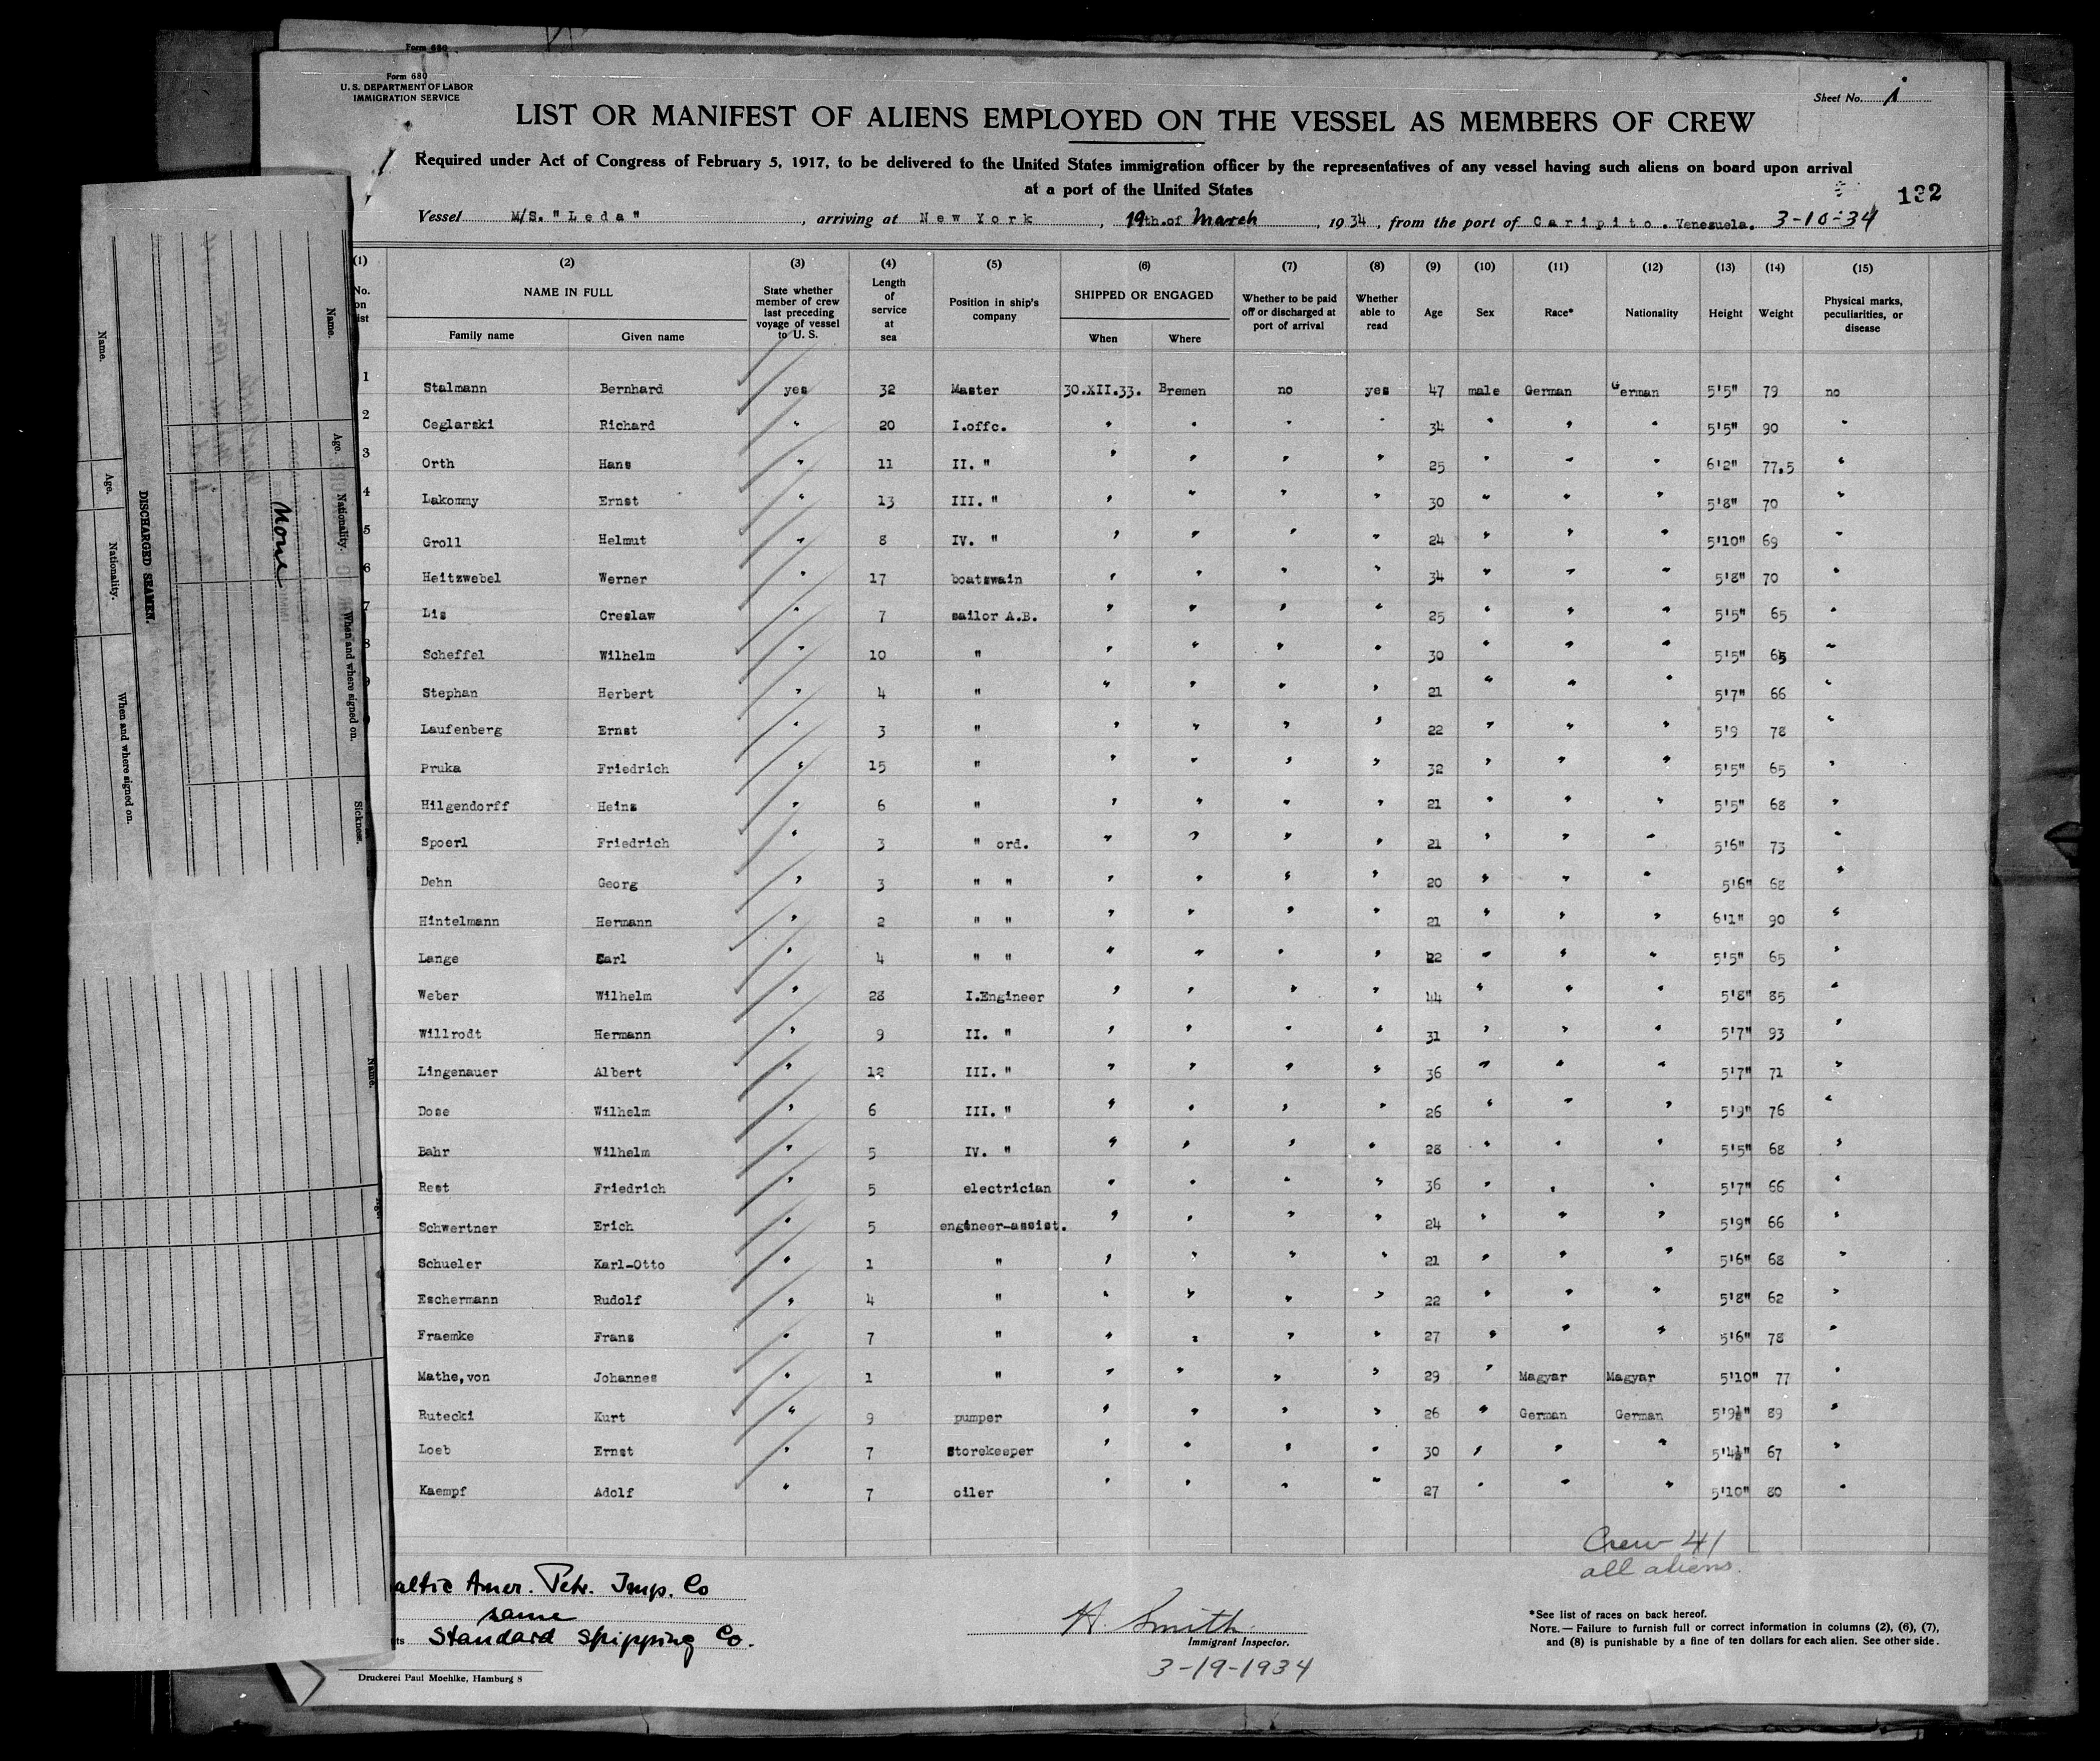 Form 680
Form 680
U. S. DEPARTMENT OF LABOR
IMMIGRATION SERVICE
Sheet No. 1
LIST OR MANIFEST OF ALIENS EMPLOYED ON THE VESSEL AS MEMBERS OF CREW
Required under Act of Congress of February 5, 1917, to be delivered to the United States immigration officer by the representatives of any vessel having such aliens on board upon arrival
at a port of the United States
132
Vessel M/S. "Leda", arriving at New York, 19th. of March, 1934, from the port of Caripito. Venezuela. 3-10-34
(1) (2) (3) (4) (5) (6) (7) (8) (9) (10) (11) (12) (13) (14) (15)
No. on list NAME IN FULL Family name Given name State whether member of crew last preceding voyage of vessel to U. S. Length of service at sea Position in ship's company SHIPPED OR ENGAGED When Where Whether to be paid off or discharged at port of arrival Whether able to read Age Sex Race* Nationality Height Weight Physical marks, peculiarities, or disease
1 Stalmann Bernhard yes 32 Master 30.XII.33. Bremen no yes 47 male German German 5'5" 79 no
2 Ceglarski Richard " 20 I.offc. " " " " 34 " " " 5'5" 90 "
3 Orth Hans " 11 II. " " " " " 25 " " " 6'2" 77.5 "
4 Lakommy Ernst " 13 III. " " " " " 30 " " " 5'8" 70 "
5 Groll Helmut " 8 IV. " " " " " 24 " " " 5'10" 69 "
6 Heitzwebel Werner " 17 boatswain " " " " 34 " " " 5'8" 70 "
7 Lis Creslaw " 7 sailor A.B. " " " " 25 " " " 5'5" 65 "
8 Scheffel Wilhelm " 10 " " " " " 30 " " " 5'5" 65 "
9 Stephan Herbert " 4 " " " " " 21 " " " 5'7" 66 "
Laufenberg Ernst " 3 " " " " " 22 " " " 5'9 78 "
Pruka Friedrich " 15 " " " " " 32 " " " 5'5" 65 "
Hilgendorff Heinz " 6 " " " " " 21 " " " 5'5" 68 "
Spoerl Friedrich " 3 " ord. " " " " 21 " " " 5'6" 73 "
Dehn Georg " 3 " " " " " " 20 " " " 5'6" 68 "
Hintelmann Hermann " 2 " " " " " " 21 " " " 6'1" 90 "
Lange Carl " 4 " " " " " " 22 " " " 5'5" 65 "
Weber Wilhelm " 28 I.Engineer " " " " 44 " " " 5'8" 85 "
Willrodt Hermann " 9 II. " " " " " 31 " " " 5'7" 93 "
Lingenauer Albert " 12 III. " " " " " 36 " " " 5'7" 71 "
Dose Wilhelm " 6 III. " " " " " 26 " " " 5'9" 76 "
Bahr Wilhelm " 5 IV. " " " " " 28 " " " 5'5" 68 "
Rest Friedrich " 5 electrician " " " " 36 " " " 5'7" 66 "
Schwertner Erich " 5 engineer-assist. " " " " 24 " " " 5'9" 66 "
Schueler Karl-Otto " 1 " " " " " 21 " " " 5'6" 68 "
Eschermann Rudolf " 4 " " " " " 22 " " " 5'8" 62 "
Fraemke Franz " 7 " " " " " 27 " " " 5'6" 78 "
Mathe,von Johannes " 1 " " " " " 29 " Magyar Magyar 5'10" 77 "
Rutecki Kurt " 9 pumper " " " " 26 " German German 5'9½" 89 "
Loeb Ernst " 7 Storekeeper " " " " 30 " " " 5'4½" 67 "
Kaempf Adolf " 7 oiler " " " " 27 " " " 5'10" 80 "
Crew 41
all aliens.
altic Amer. Petr. Imp. Co
same
ts Standard Shipping Co.
H. Smith
Immigrant Inspector.
3-19-1934
*See list of races on back hereof.
NOTE.—Failure to furnish full or correct information in columns (2), (6), (7),
and (8) is punishable by a fine of ten dollars for each alien. See other side.
Druckerei Paul Moehlke, Hamburg 8
Name. Age. Nationality. When and where signed on. Sickness.
None
DISCHARGED SEAMEN.
Name. Age. Nationality. When and where signed on.
Name.